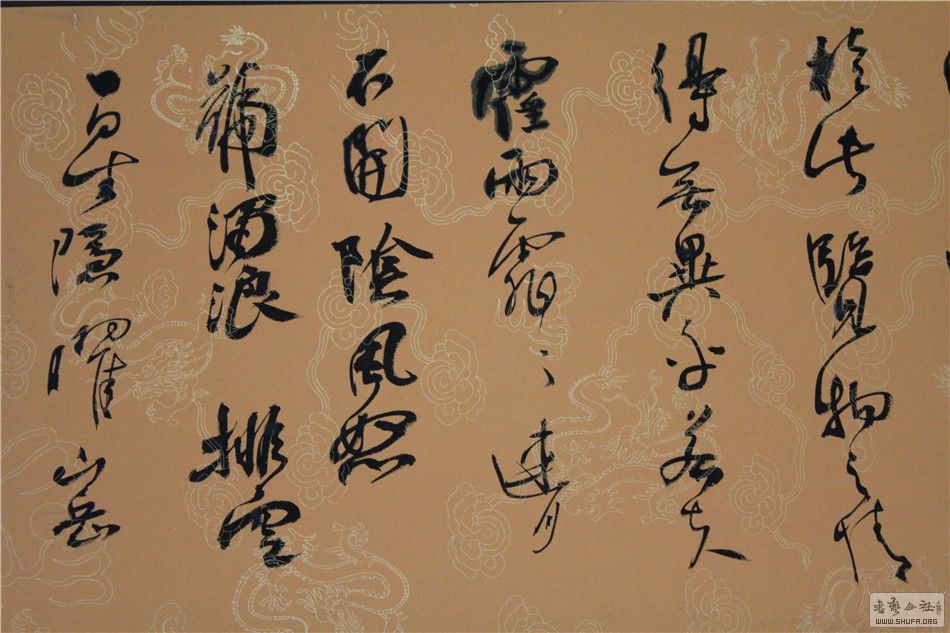 於此覽物之情
得無異乎若夫
霪雨霏〻連月
不開陰風怒
號濁浪排空
日星隱曜山岳
書藝公社
WWW.SHUFA.ORG